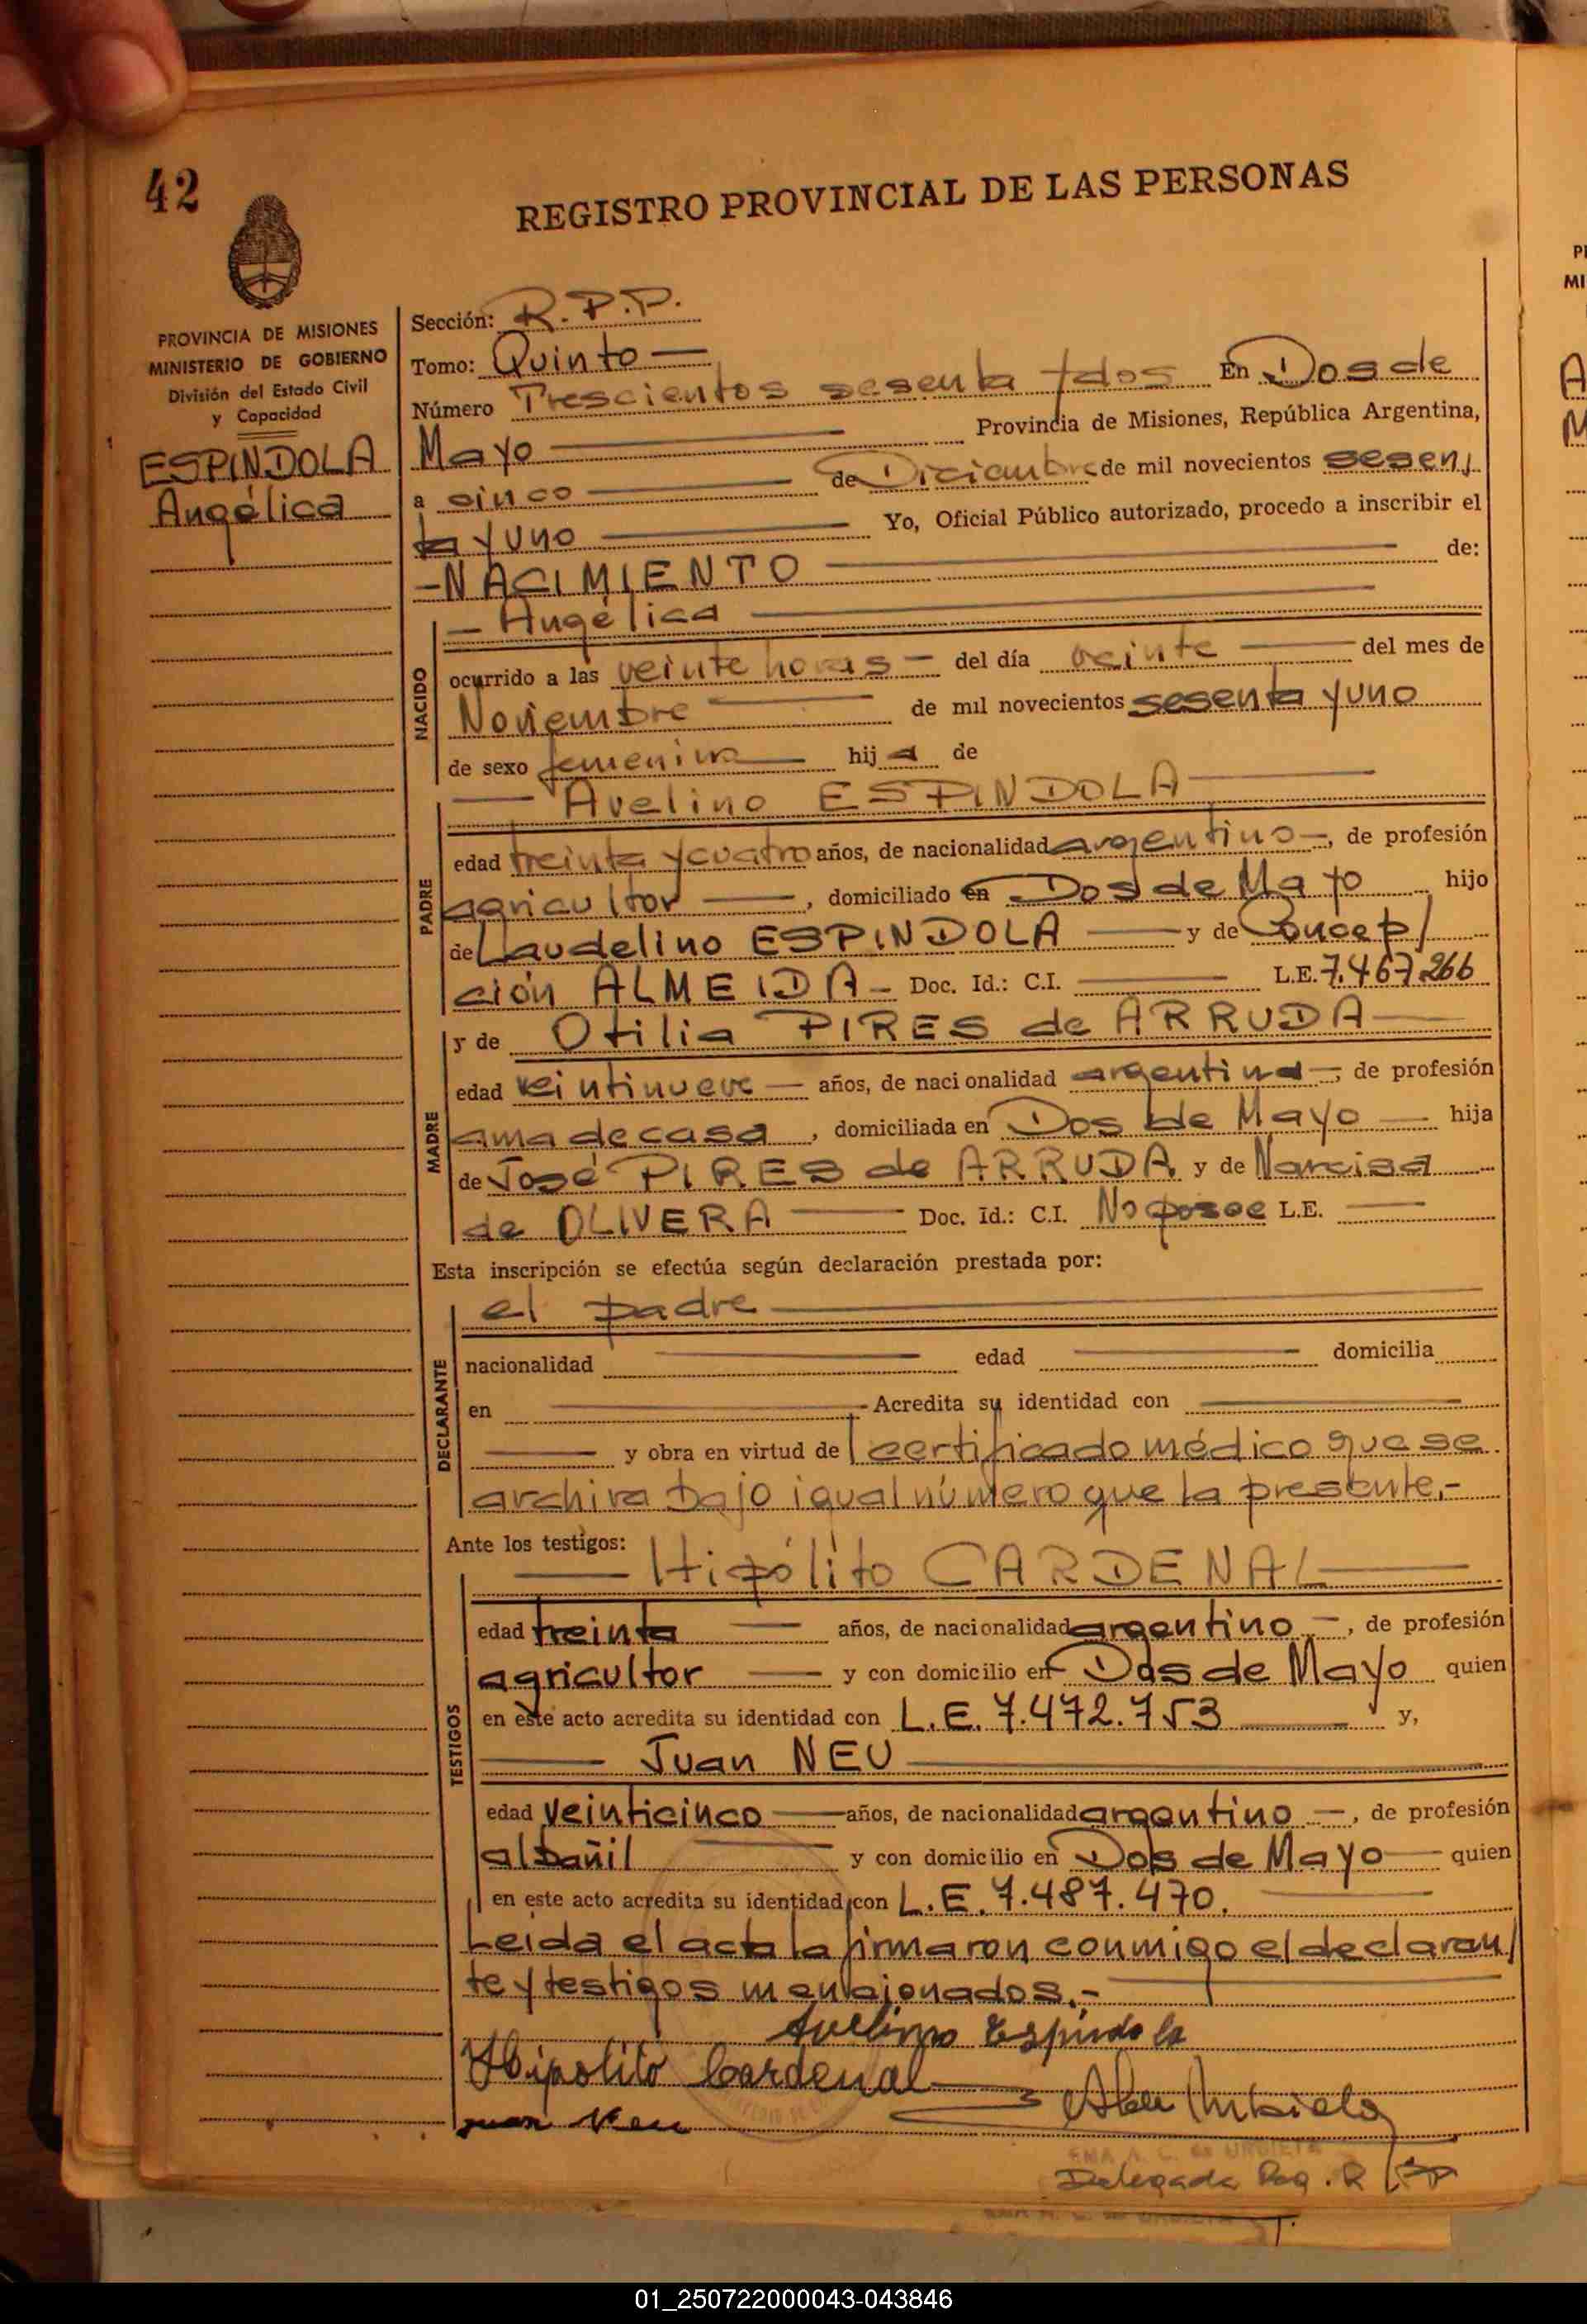 42
REGISTRO PROVINCIAL DE LAS PERSONAS
PROVINCIA DE MISIONES
MINISTERIO DE GOBIERNO
División del Estado Civil
y Capacidad
ESPINDOLA
Angélica
Sección: R.P.P.
Tomo: Quinto —
Número Trescientos sesenta y dos En Dos de
Mayo — Provincia de Misiones, República Argentina,
a cinco — de Diciembre de mil novecientos sesen/
ta y uno — Yo, Oficial Público autorizado, procedo a inscribir el
-NACIMIENTO — de:
NACIDO
— Angélica —
ocurrido a las veinte horas — del día veinte — del mes de
Noviembre — de mil novecientos sesenta y uno
de sexo femenino — hija de
PADRE
— Avelino ESPINDOLA —
edad treinta y cuatro años, de nacionalidad argentino —, de profesión
agricultor —, domiciliado en Dos de Mayo hijo
de Laudelino ESPINDOLA — y de Concep/
ción ALMEIDA — Doc. Id.: C.I. — L.E. 7.467.266
MADRE
y de Otilia PIRES de ARRUDA —
edad veintinueve — años, de nacionalidad argentina —, de profesión
ama de casa, domiciliada en Dos de Mayo — hija
de José PIRES de ARRUDA y de Narcisa
de OLIVERA — Doc. Id.: C.I. No posee L.E. —
Esta inscripción se efectúa según declaración prestada por:
DECLARANTE
el padre —
nacionalidad — edad — domicilia
en — Acredita su identidad con —
— y obra en virtud de certificado médico que se
archiva bajo igual número que la presente.-
Ante los testigos:
TESTIGOS
— Hipólito CARDENAL —
edad treinta — años, de nacionalidad argentino —, de profesión
agricultor — y con domicilio en Dos de Mayo quien
en este acto acredita su identidad con L.E. 7.472.753 — y,
— Juan NEU —
edad veinticinco — años, de nacionalidad argentino —, de profesión
albañil — y con domicilio en Dos de Mayo — quien
en este acto acredita su identidad con L.E. 7.487.470. —
Leida el acta la firmaron conmigo el declaran/
te y testigos mencionados.- —
Avelino Espindola
Hipolito Cardenal
Juan Neu
EMA A. C. de URBIETA
Delegada Reg.
01_250722000043-043846